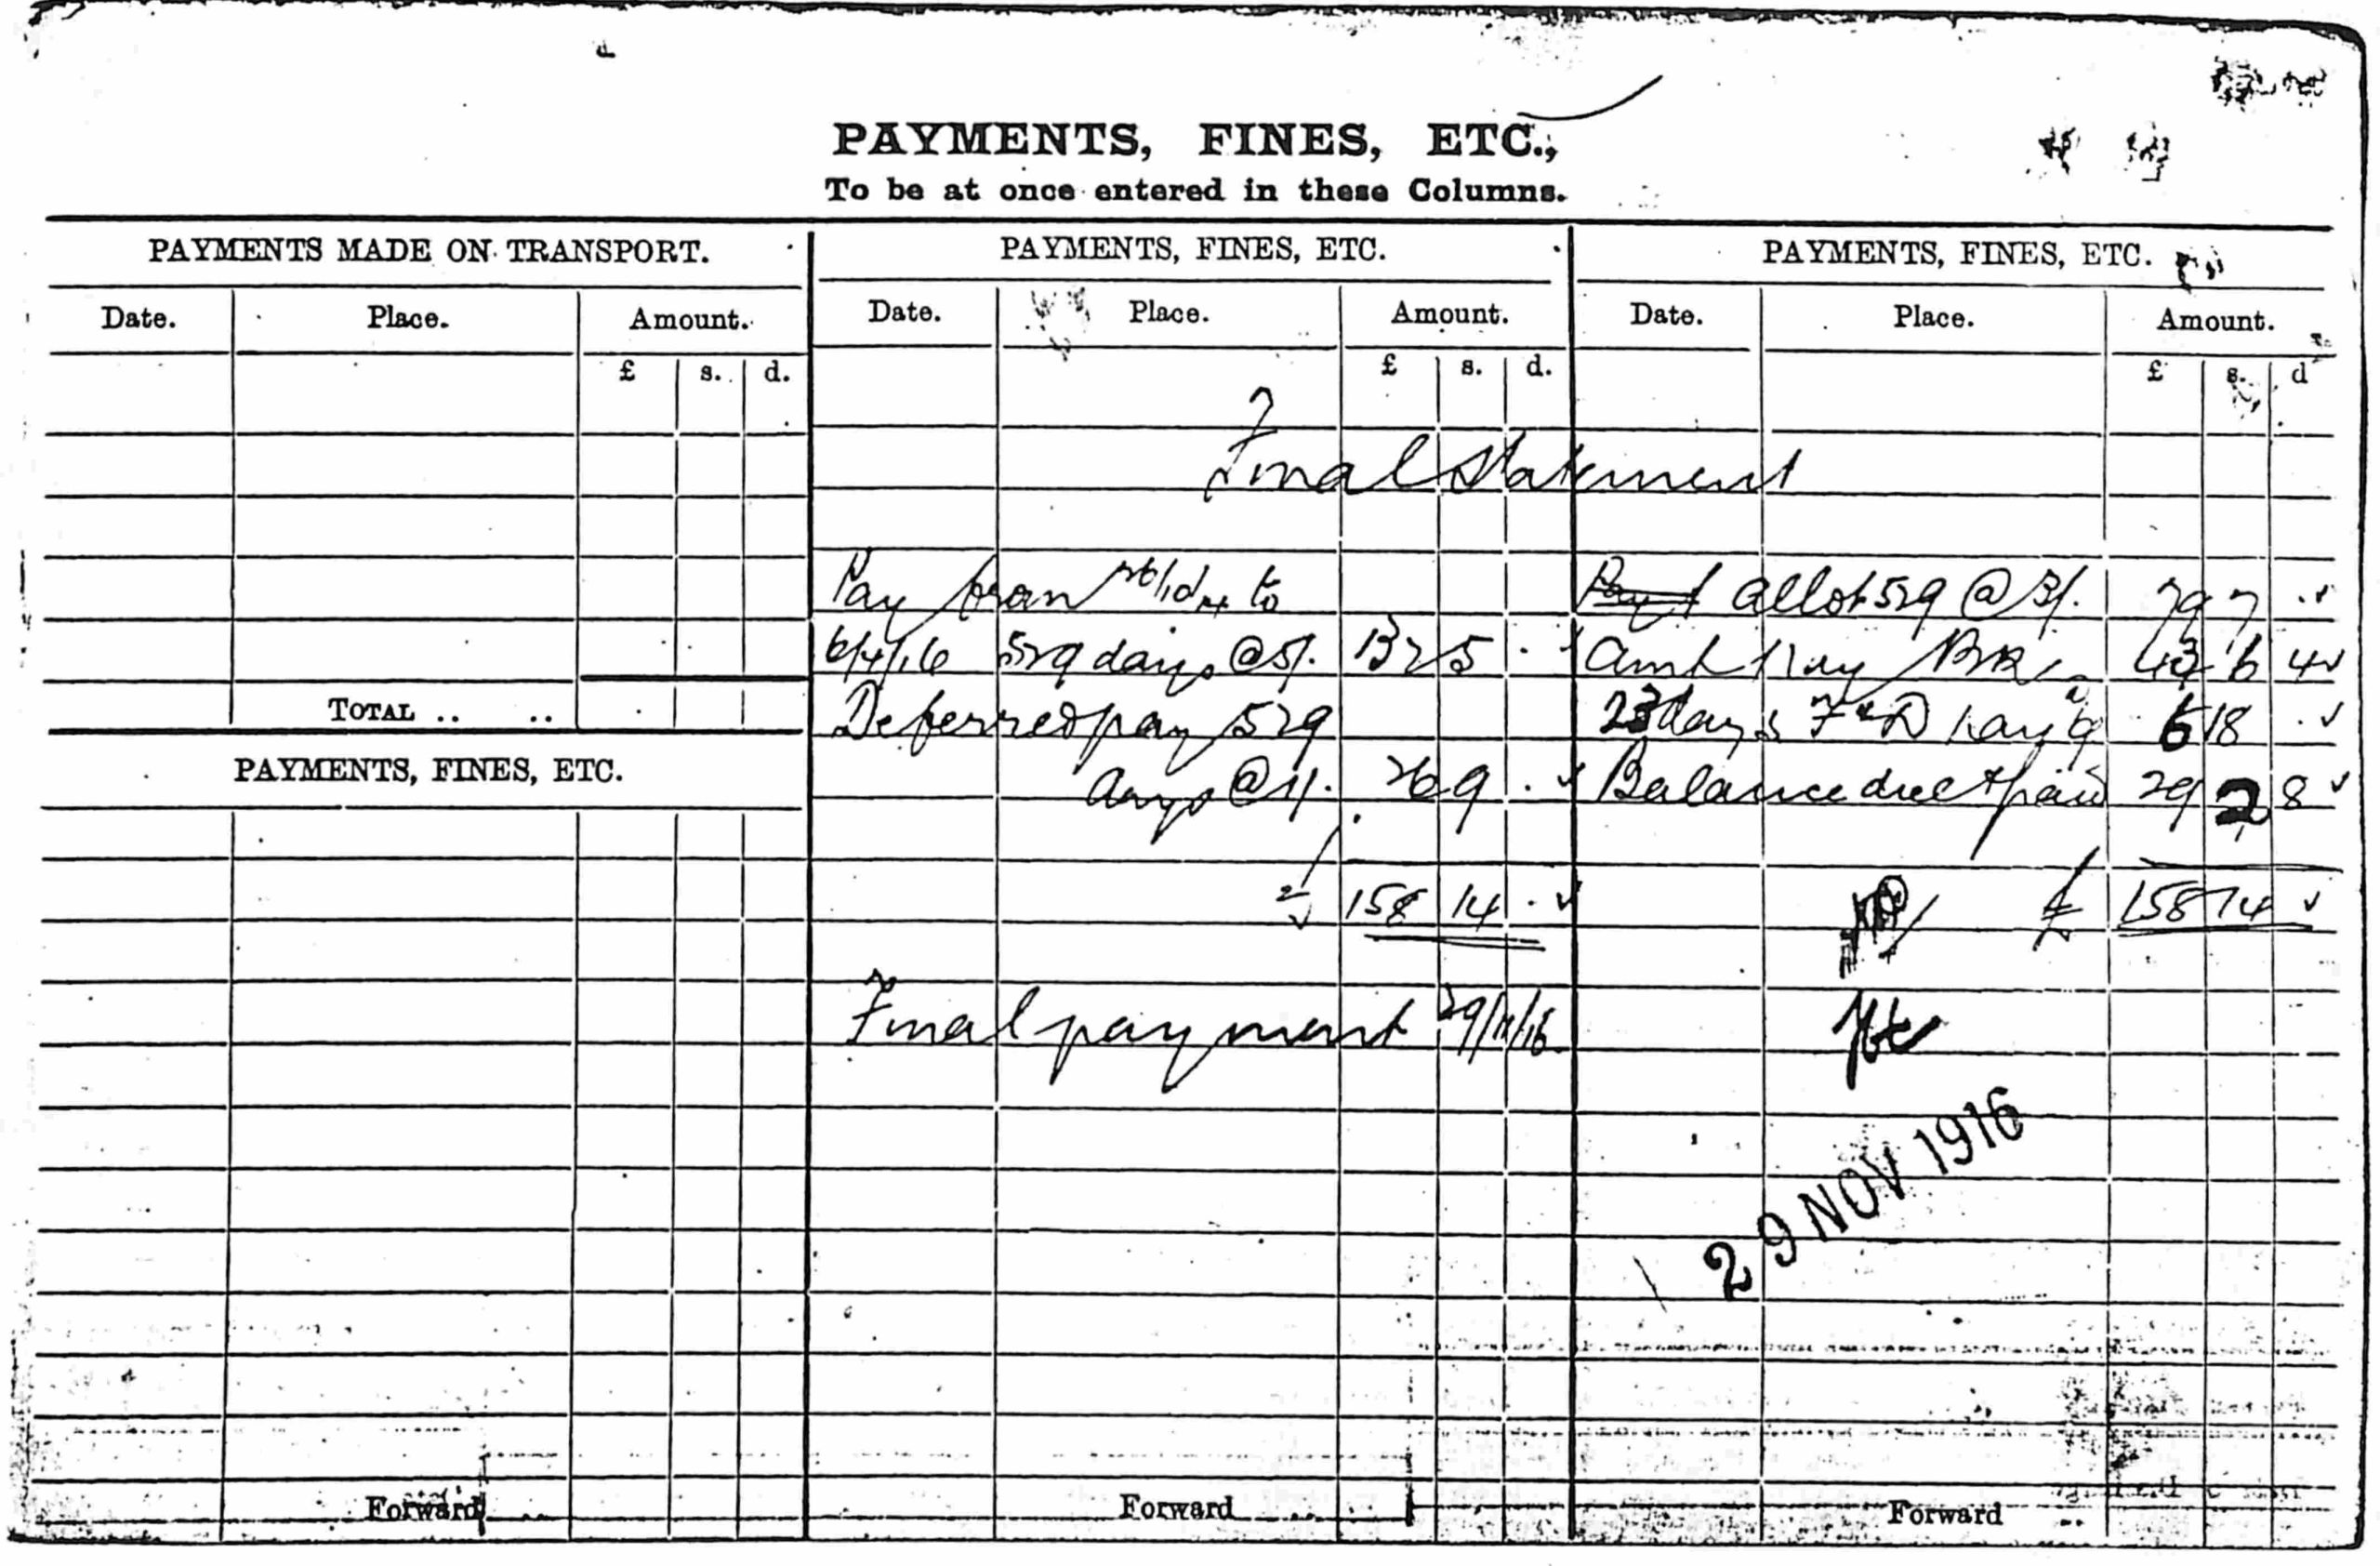 PAYMENTS, FINES, ETC.,
To be at once entered in these Columns.
PAYMENTS MADE ON TRANSPORT.
Date. Place. Amount.
£ s. d.
TOTAL .. ..
PAYMENTS, FINES, ETC.
Forward
PAYMENTS, FINES, ETC.
Date. Place. Amount.
£ s. d.
Final Statement
Pay from to
6/4/16 529 days @ 5/. 132 5 .
Deferred pay 529
days @ 1/. 26 9 .
158 14 .
Final payment 29/11/16
Forward
PAYMENTS, FINES, ETC.
Date. Place. Amount.
£ s. d
allot 529 @ 3/. 79 7 .
Amt 43 6 4
23 days 6 18 .
Balance due & paid 29 2 8
£ 158 14
29 NOV 1916
Forward ..